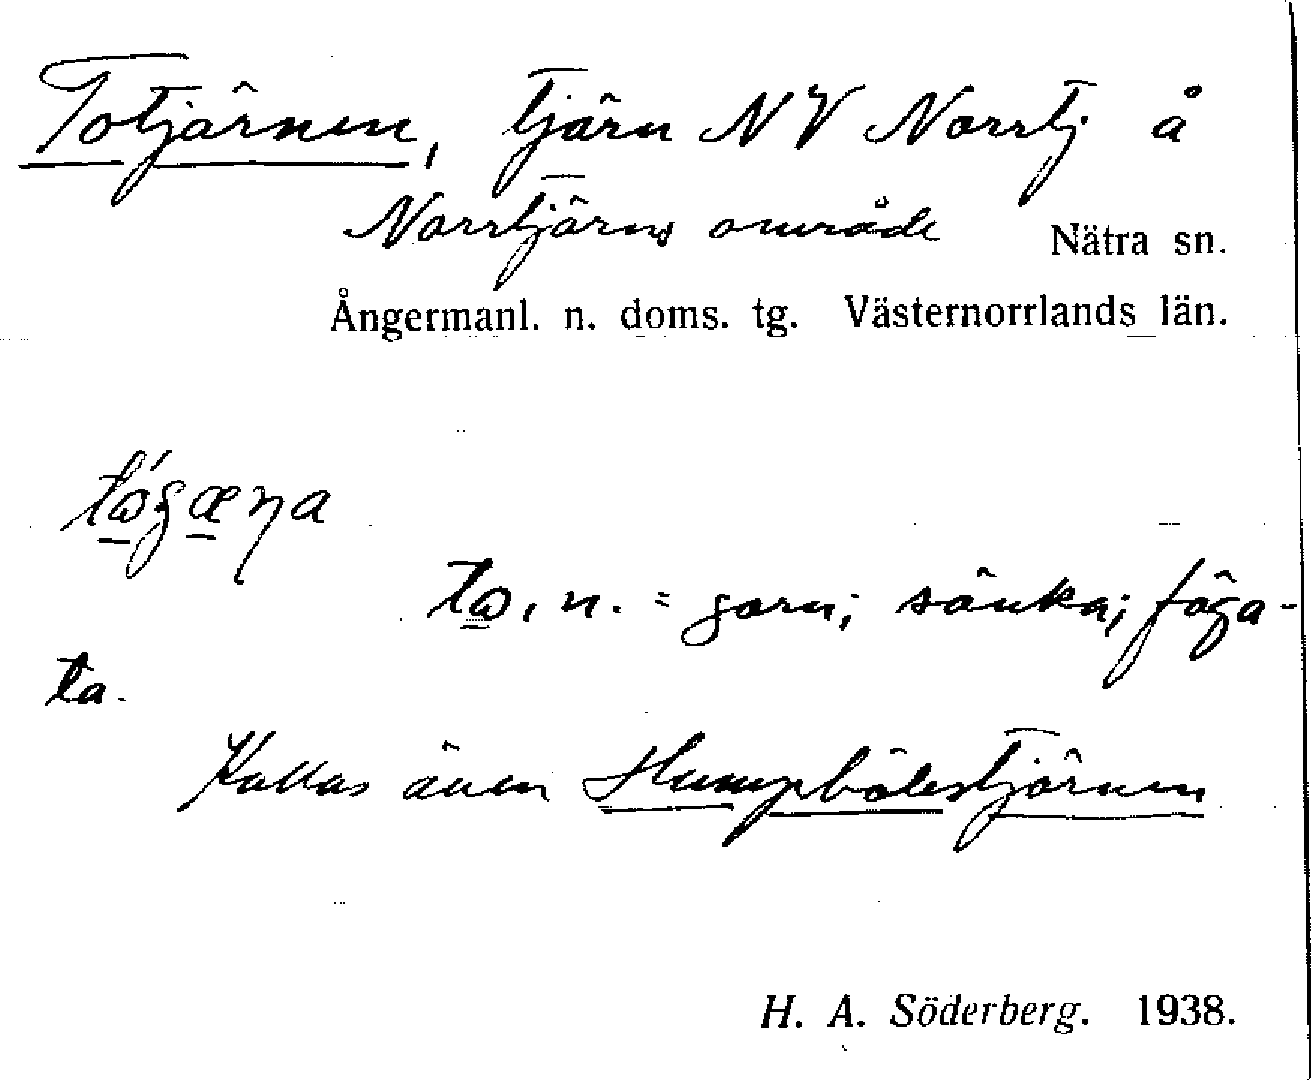 Totjärnen, Tjärn NV Norrtj å
Norrtjärns område Nätra sn.
Ångermanl. n. doms. tg. Västernorrlands län.
n. = garn; sänka;
ta.
Kallas även Humpbölestjärnen
H. A. Söderberg. 1938.